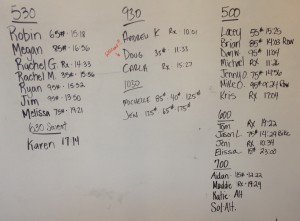 530
Robin 65# - 15:18
Megan 85# - 16:56
Rachel G. Rx - 14:33
Rachel M. 35# - 15:56
Ryan 95# - 15:52
Jim 95# - 13:50
Melissa 75# - 19:21
630 Sweet
Karen 17:14
930
Andrew K Rx 10:01
Doug 35# 11:33
Carla Rx 15:27
1030
Michelle 85# 40# 125#
Jen 125# 65# 175#
500
Lacey 55# 15:25
Brian 85# 14:03 Row
Dawn 95# 11:04
Michael Rx 11:26
Jenny O 75# 14:56
Mike O. 95# 9:24 Row
Kris Rx 17:04
600
Tom Rx 19:22
Jason L 75# 14:29 Bike
Jeni Rx 10:34
Elissa 15# 23:00
700
Aidan 15# - 12:22
Maddie Rx - 19:29
Katie Alt
Sol Alt.